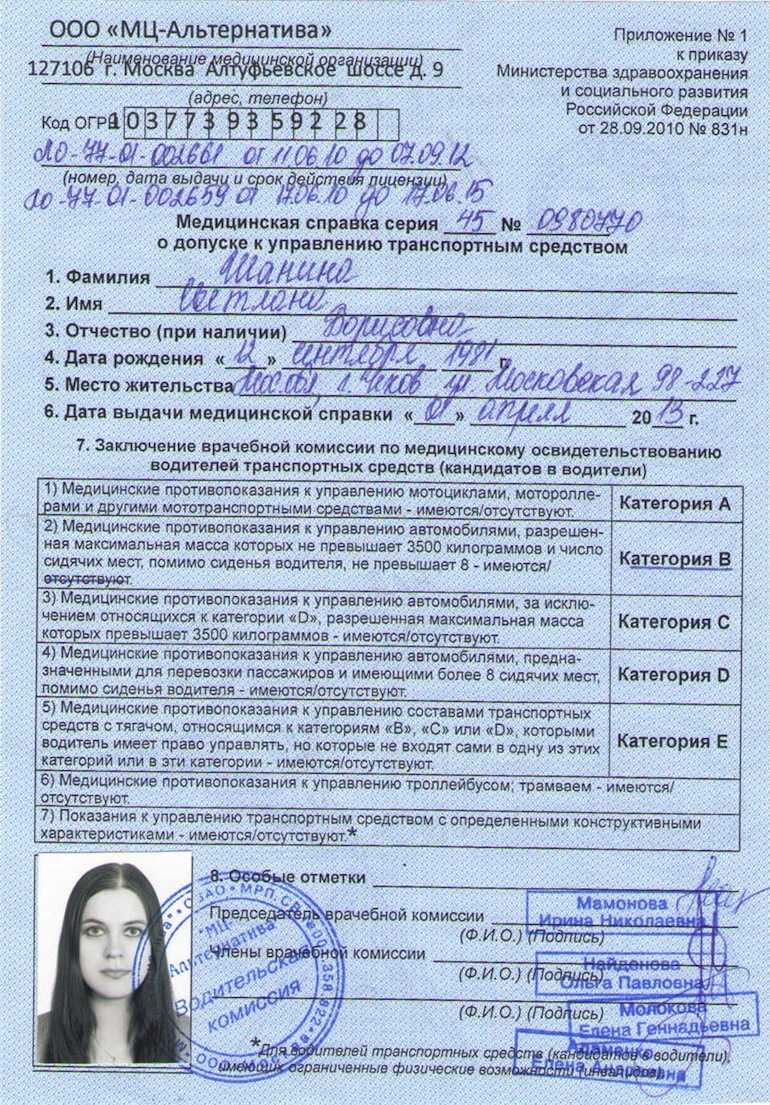 ООО «МЦ-Альтернатива»
(Наименование медицинской организации)
127106 г. Москва Алтуфьевское шоссе д. 9
(адрес, телефон)
Код ОГРН 1037739359228
ЛО-77-01-002661 от 11.06.10 до 07.09.12
(номер, дата выдачи и срок действия лицензии)
ЛО-77-01-002659 от 17.06.10 до 17.06.15
Приложение № 1
к приказу
Министерства здравоохранения
и социального развития
Российской Федерации
от 28.09.2010 № 831н
Медицинская справка серия 45 № 0980770
о допуске к управлению транспортным средством
1. Фамилия Шанина
2. Имя Светлана
3. Отчество (при наличии) Борисовна
4. Дата рождения «12» сентября 1981 г.
5. Место жительства г. Чехов ул Московская 98-227
6. Дата выдачи медицинской справки «01» апреля 2013 г.
7. Заключение врачебной комиссии по медицинскому освидетельствованию
водителей транспортных средств (кандидатов в водители)
1) Медицинские противопоказания к управлению мотоциклами, моторолле-
рами и другими мототранспортными средствами - имеются/отсутствуют.
Категория А
2) Медицинские противопоказания к управлению автомобилями, разрешен-
ная максимальная масса которых не превышает 3500 килограммов и число
сидячих мест, помимо сиденья водителя, не превышает 8 - имеются/
отсутствуют.
Категория В
3) Медицинские противопоказания к управлению автомобилями, за исклю-
чением относящихся к категории «D», разрешенная максимальная масса
которых превышает 3500 килограммов - имеются/отсутствуют.
Категория С
4) Медицинские противопоказания к управлению автомобилями, предна-
значенными для перевозки пассажиров и имеющими более 8 сидячих мест,
помимо сиденья водителя - имеются/отсутствуют.
Категория D
5) Медицинские противопоказания к управлению составами транспортных
средств с тягачом, относящимся к категориям «В», «С» или «D», которыми
водитель имеет право управлять, но которые не входят сами в одну из этих
категорий или в эти категории - имеются/отсутствуют.
Категория Е
6) Медицинские противопоказания к управлению троллейбусом; трамваем - имеются/
отсутствуют.
7) Показания к управлению транспортным средством с определенными конструктивными
характеристиками - имеются/отсутствуют.*
8. Особые отметки
Председатель врачебной комиссии
Мамонова
Ирина Николаевна
(Ф.И.О.) (Подпись)
Члены врачебной комиссии
Найденова
Ольга Павловна
(Ф.И.О.) (Подпись)
Молокова
Елена Геннадьевна
(Ф.И.О.) (Подпись)
Адаменко
Елена Андреевна
"МЦ-
Альтернатива"
Водительская
комиссия
*Для водителей транспортных средств (кандидатов в водители),
имеющих ограниченные физические возможности (инвалидов).